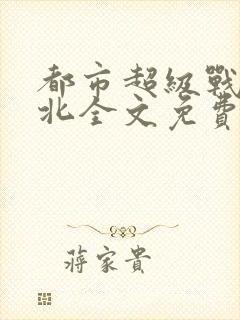 都市超級戰
北全文免費
蔣家貴